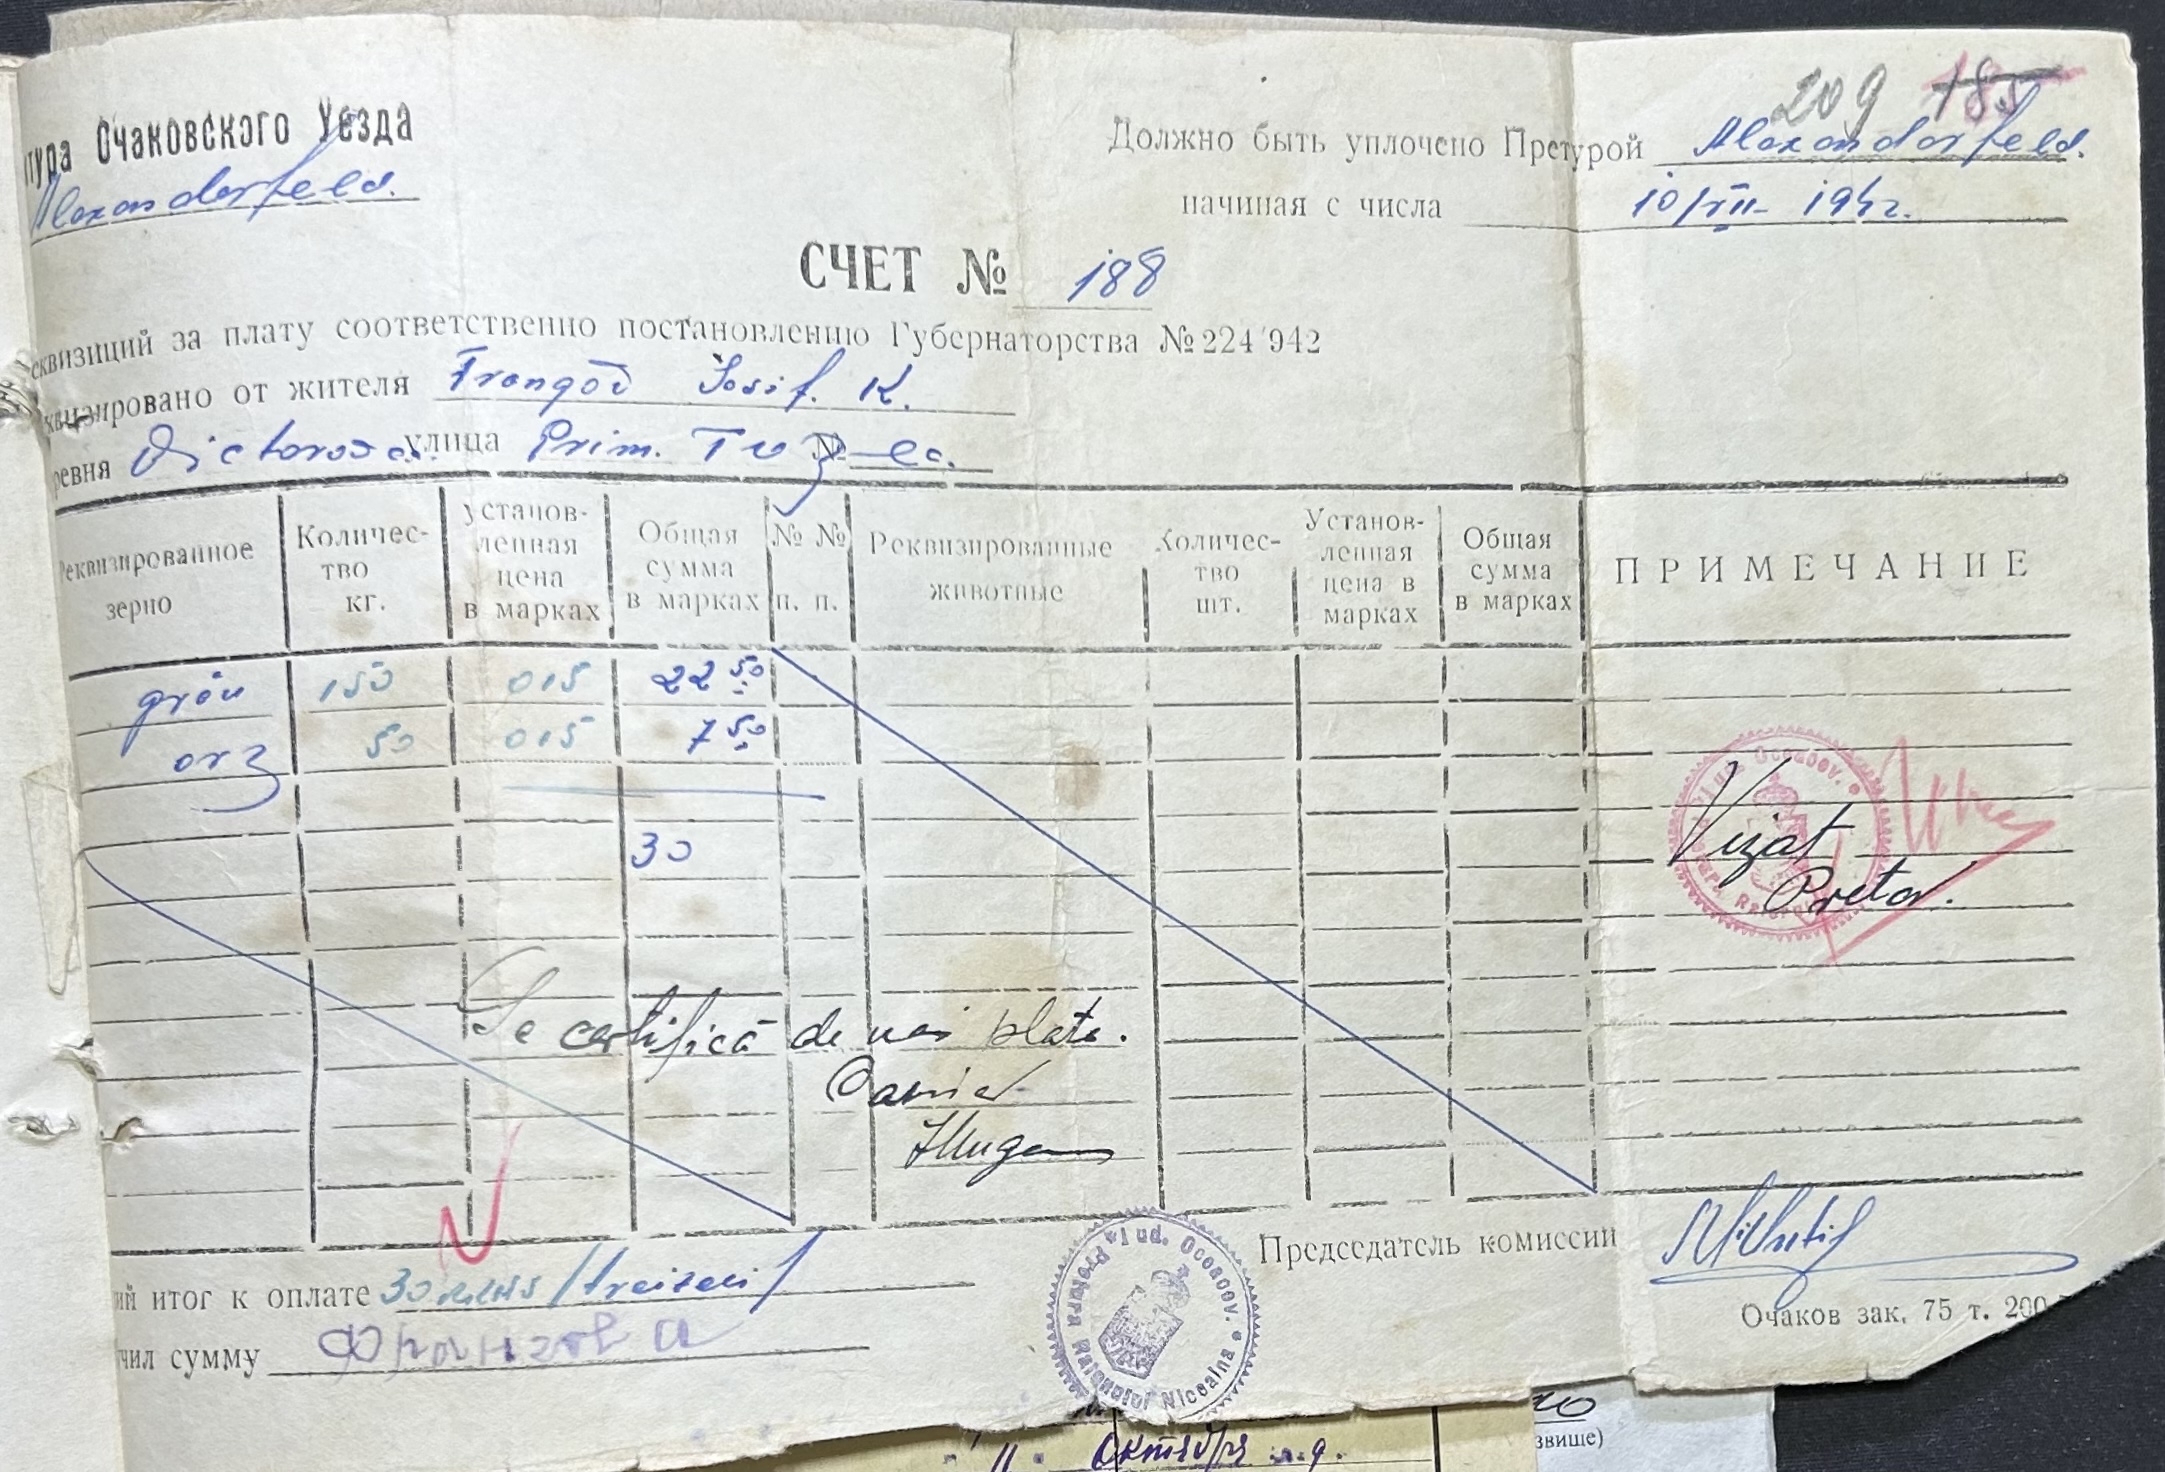 209 185
тура Очаковского Уезда
Должно быть уплочено Претурой Alexandorfeld.
Alexandorfeld.
начиная с числа 10/VII- 1942.
СЧЕТ № 188
еквизиций за плату соответственно постановлению Губернаторства № 224 942
квизировано от жителя Frangov Iosif. K.
ревня Victorovca. улица Prim. №
Реквизированное зерно
Количес-
тво
кг.
Установ-
ленная
цена
в марках
Общая
сумма
в марках
№ №
п. п.
Реквизированные
животные
Количес-
тво
шт.
Установ-
ленная
цена в
марках
Общая
сумма
в марках
ПРИМЕЧАНИЕ
grâu 150 015 22 50
orz 50 015 7 50
30
Vizat
Pretor.
Se certifică de noi plata.
Председатель комиссии
ий итог к оплате 30 /treizeci/
чил сумму Франгов
Pretura Raionului Nicealna * Jud. Oceacov. *
Очаков зак. 75 т. 200
октября
звище)